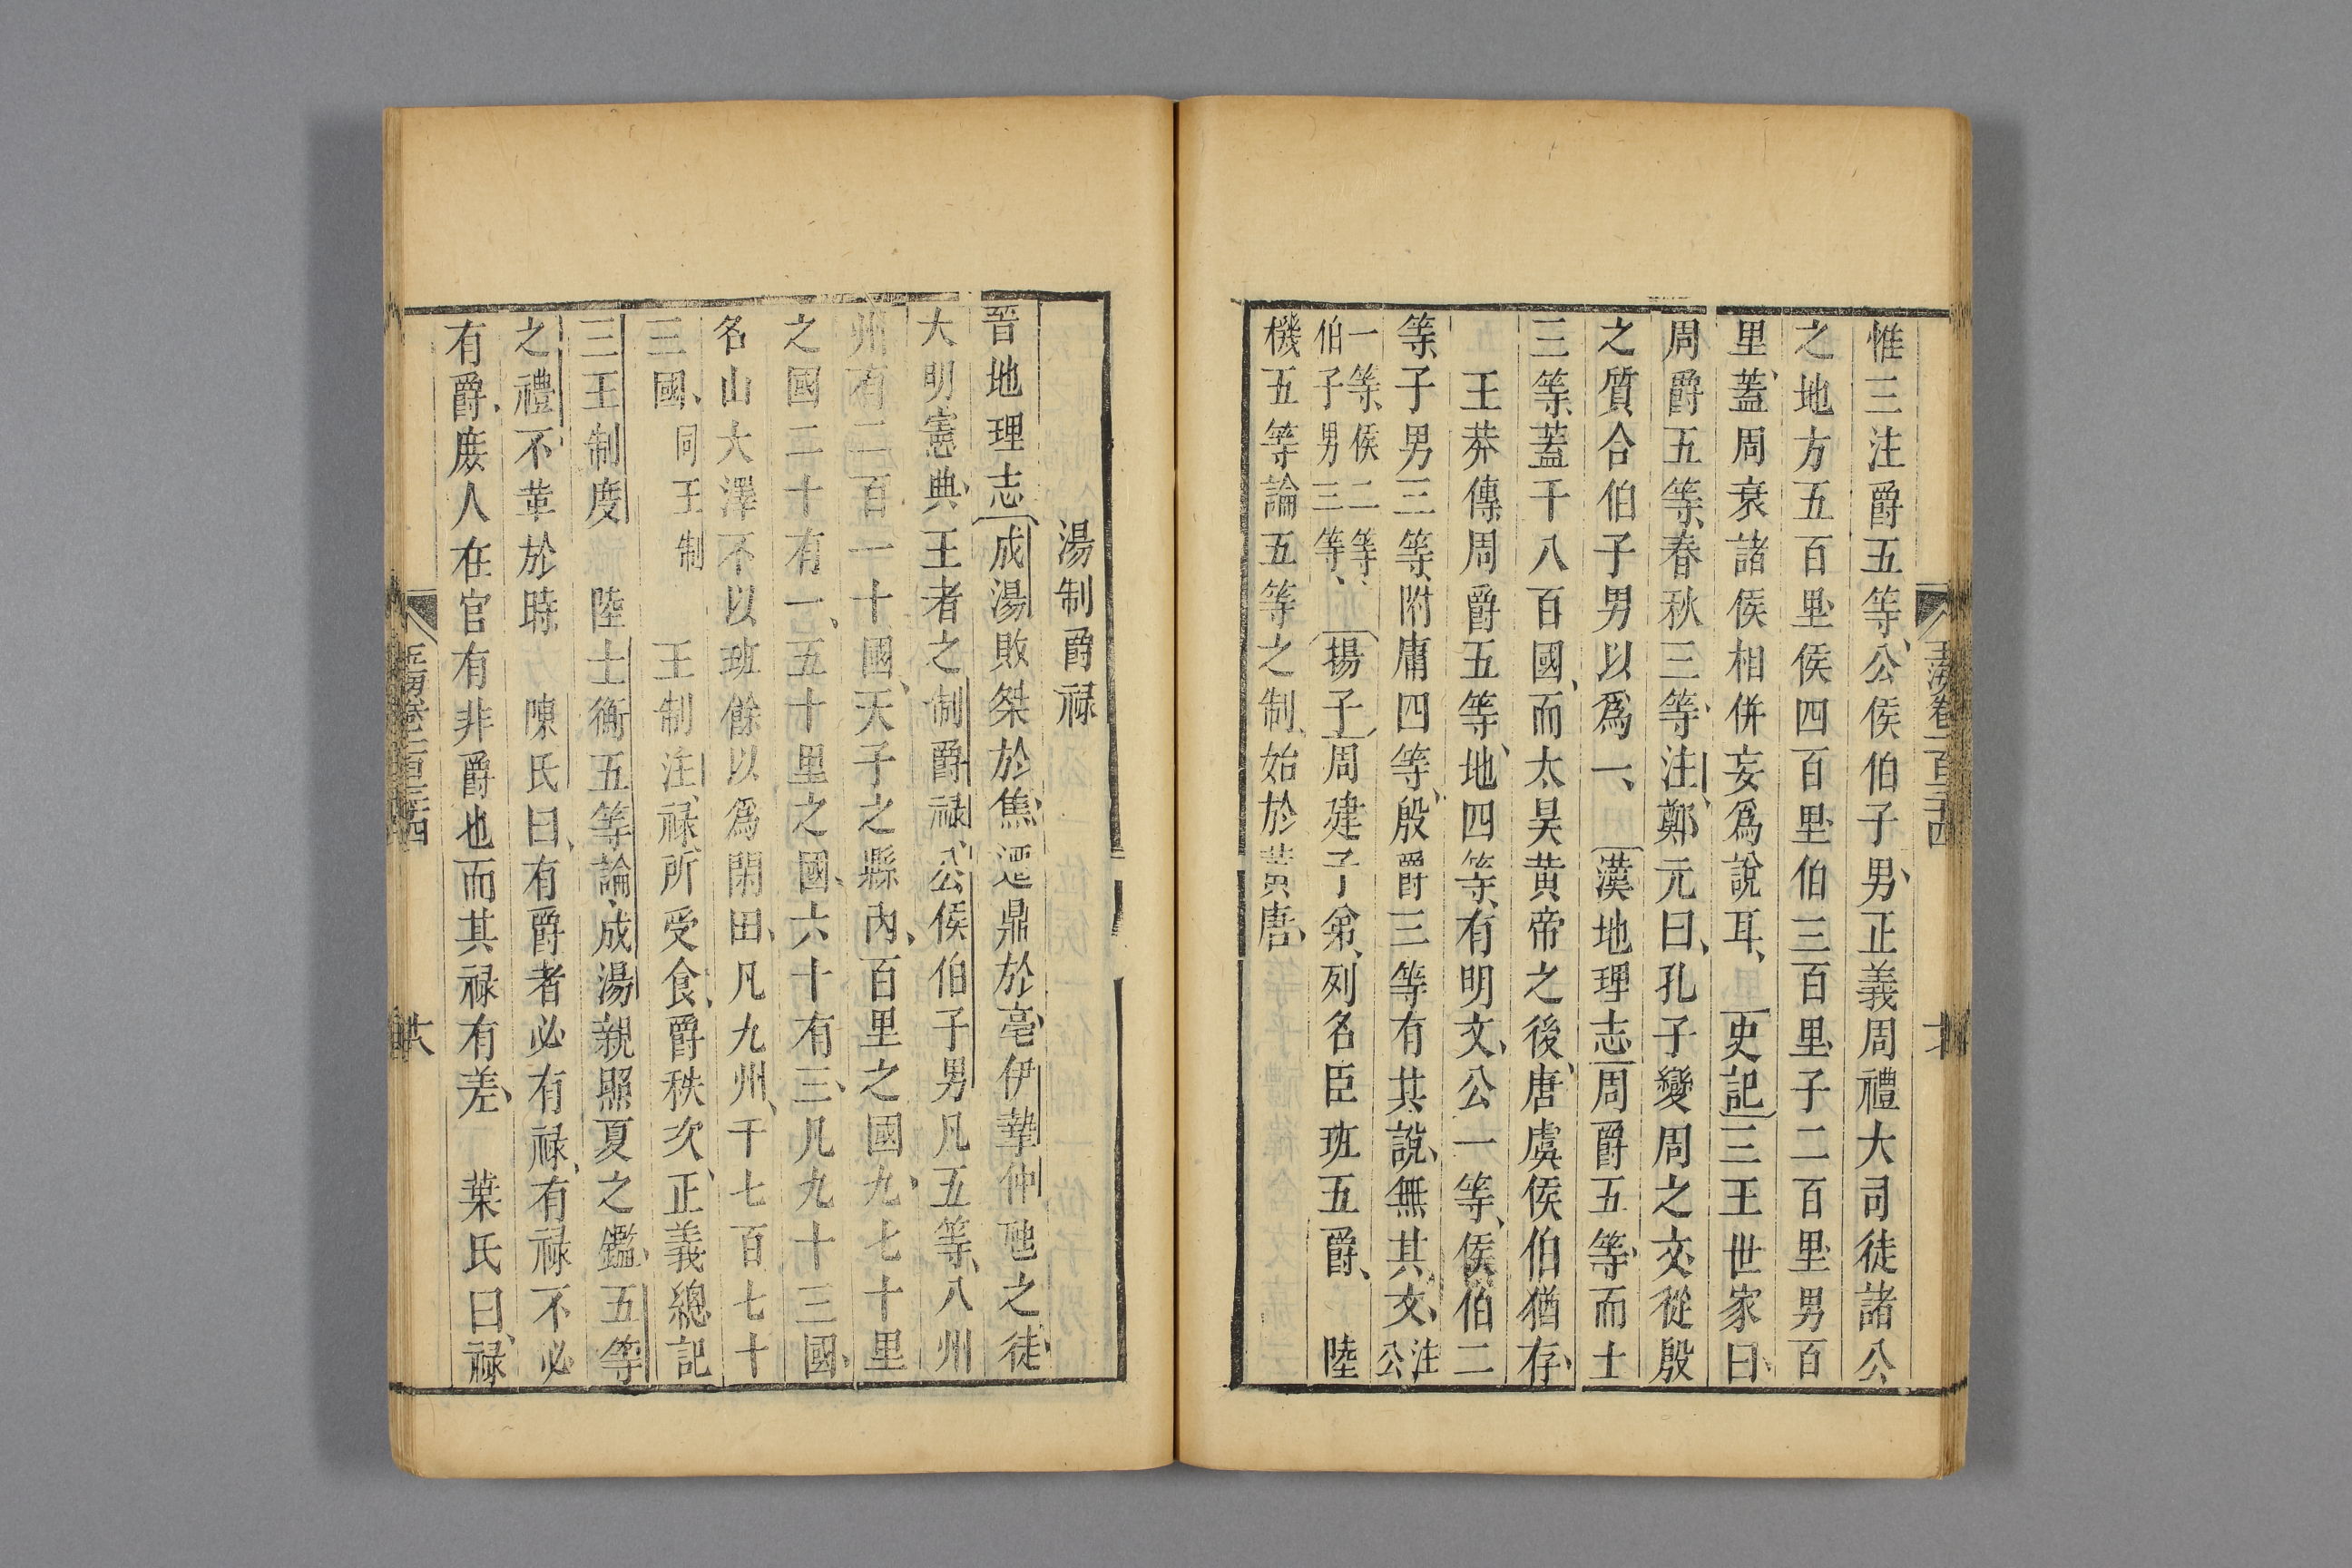 惟三注爵五等、公侯伯子男、正義周禮大司徒諸公
之地方五百里侯四百里伯三百里子二百里男百
里、蓋周衰諸侯相併妄爲說耳、史記三王世家曰、
周爵五等、春秋三等、注、鄭元曰、孔子變周之文、從殷
之質合伯子男以爲一、漢地理志周爵五等、而士
三等、蓋千八百國、而太昊黃帝之後、唐虞侯伯猶存、
王莽傳周爵五等、地四等、有明文、公一等、侯伯二
等、子男三等、附庸四等、殷爵三等有其說、無其文、注公
一等、侯二等伯子男三等、揚子周建子弟、列名臣班五爵、陸
機五等論五等之制、始於黃唐、
湯制爵祿
晉地理志成湯敗桀於焦、遷鼎於亳、伊摯仲虺之徒、
大明憲典、王者之制爵祿、公侯伯子男凡五等、八州
州有二百一十國、天子之縣內、百里之國九、七十里
之國二十有一、五十里之國、六十有三、凡九十三國、
名山大澤不以班餘以爲閑田、凡九州、千七百七十
三國、同王制 王制注、祿所受食、爵秩次、正義總記
三王制度 陸士衡五等論、成湯親照夏之鑑、五等
之禮、不革於時 陳氏曰、有爵者必有祿、有祿不必
有爵、庶人在官有非爵也而其祿有差、 葉氏曰、祿
玉海卷一百三十四